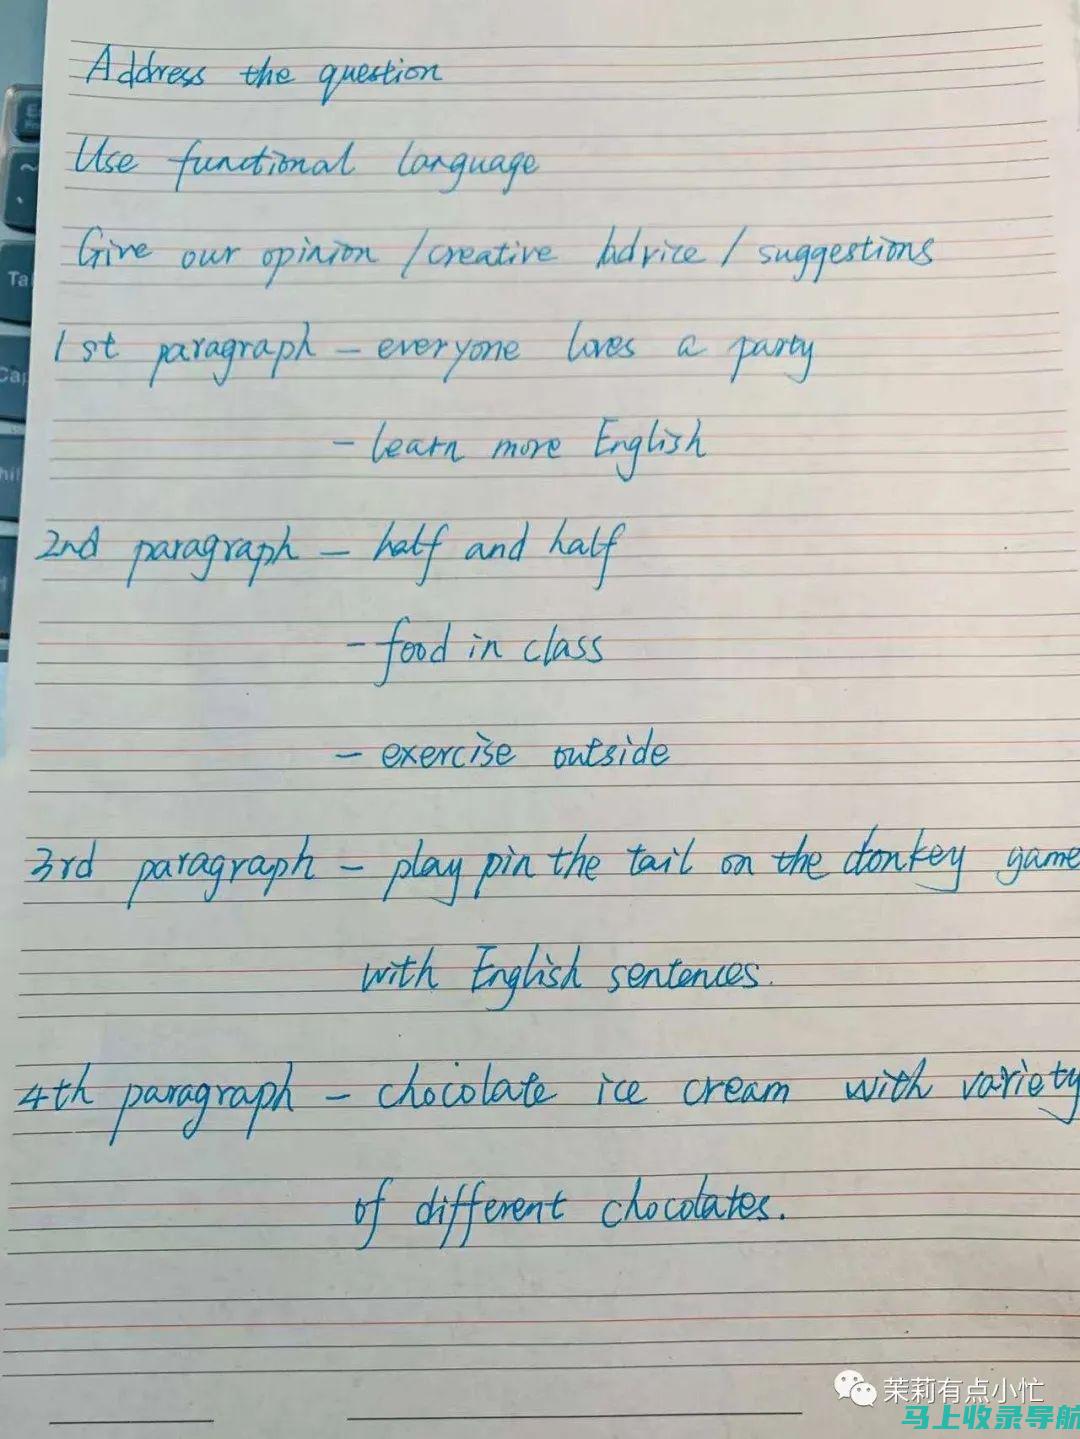 Address the question
Use functional language
Give our opinion / creative Advice / suggestions
1st paragraph - everyone loves a party
- learn more English
2nd paragraph - half and half
- food in class
- exercise outside
3rd paragraph - play pin the tail on the donkey game
with English sentences.
4th paragraph - chocolate ice cream with variety
of different chocolates.
茉莉有点小忙
马上收录导航